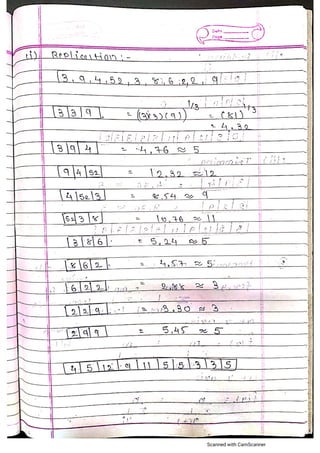 Date
Page
ii) Replication :-
3, 9, 4, 52, 3, 8, 6, 2, 2, 9
3 3 9 = (3x3x9)^1/3 = (81)^1/3
= 4.32
3 9 4 = 4.76 ≈ 5
9 4 52 = 12.32 ≈ 12
4 52 3 = 8.54 ≈ 9
52 3 8 = 10.76 ≈ 11
3 8 6 = 5.24 ≈ 5
8 6 2 = 4.57 ≈ 5
6 2 2 = 2.88 ≈ 3
2 2 9 = 3.30 ≈ 3
2 9 9 = 5.45 ≈ 5
4 5 12 9 11 5 5 3 3 5
Scanned with CamScanner